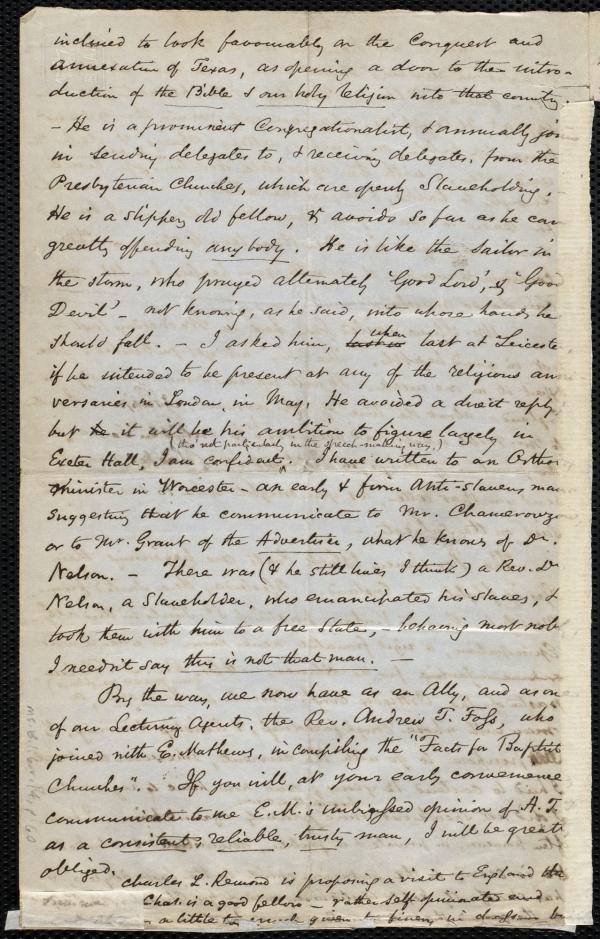 inclined to look favourably on the Conquest and
annexation of Texas, as opening a door to the intro-
duction of the Bible & our holy religion into that country.
- He is a prominent Congregationalist, & annually joins
in sending delegates to, & receiving delegates, from the
Presbyterian Churches, which are openly Slaveholding.
He is a slippery old fellow, & avoids so far as he can
greatly offending anybody. He is like the sailor in
the storm, who prayed alternately 'Good Lord', & 'Good
Devil' - not knowing, as he said, into whose hands he
should fall. - I asked him, when last at Leiceste
if he intended to be present at any of the religious an
versaries in London, in May. He avoided a direct reply,
but it will be his ambition to figure largely in
(tho' not particularly in the speech-making way.)
Exeter Hall, I am confident. I have written to an Orthox
minister in Worcester - an early & firm Anti-Slavery man
suggesting that he communicate to Mr. Chamerovzo
or to Mr. Grant of the Advertiser, what he knows of Dr.
Nelson. - There was (& he still lives I think) a Rev. Dr
Nelson, a Slaveholder, who emancipated his slaves, &
took them with him to a free State, - behaving most nobl
I needn't say this is not that man. -
By the way, we now have as an Ally, and as one
of our Lecturing Agents, the Rev. Andrew T. Foss, who
joined with E. Mathews, in compiling the "Facts for Baptist
Churches". If you will, at your early convenience
communicate to me E.M.'s unbiassed opinion of A.T.
as a consistent, reliable, trusty man, I will be great
obliged.
Charles L. Remond is proposing a visit to England
Chas. is a good fellow - rather self opinionated and
- a little too much given to finery in